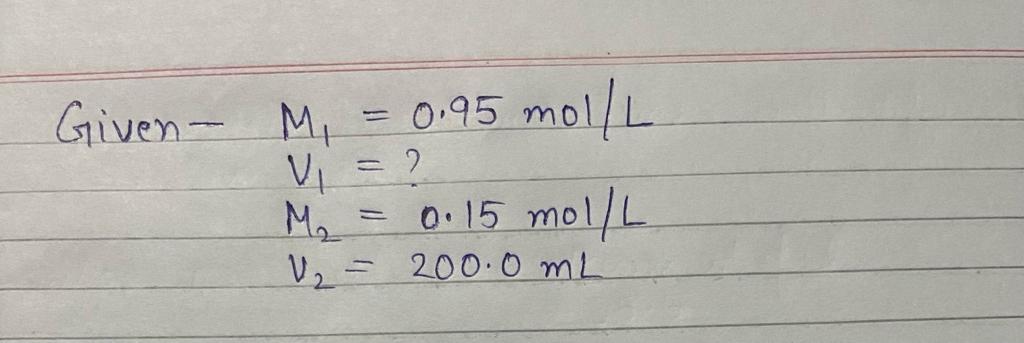 Given - M₁ = 0.95 mol/L
V₁ = ?
M₂ = 0.15 mol/L
V₂ = 200.0 mL